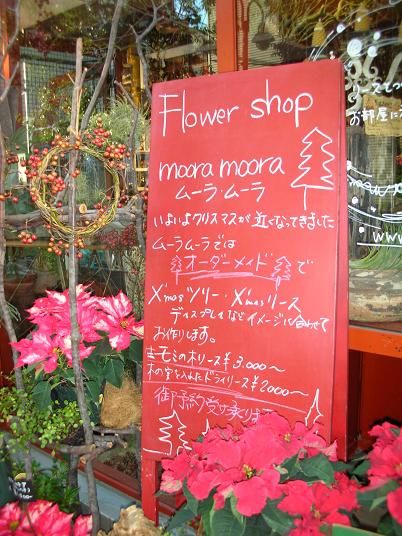 Flower shop
moora moora
ムーラ・ムーラ
いよいよクリスマスが近くなってきました
ムーラムーラでは
オーダーメイドで
X'masツリー・X'masリース
ディスプレイなどイメージに合わせて
お作りします。
生モミの木リース¥3,000〜
木の実を入れたドライリース¥2000〜
御予約受け承ります
お部屋に
www